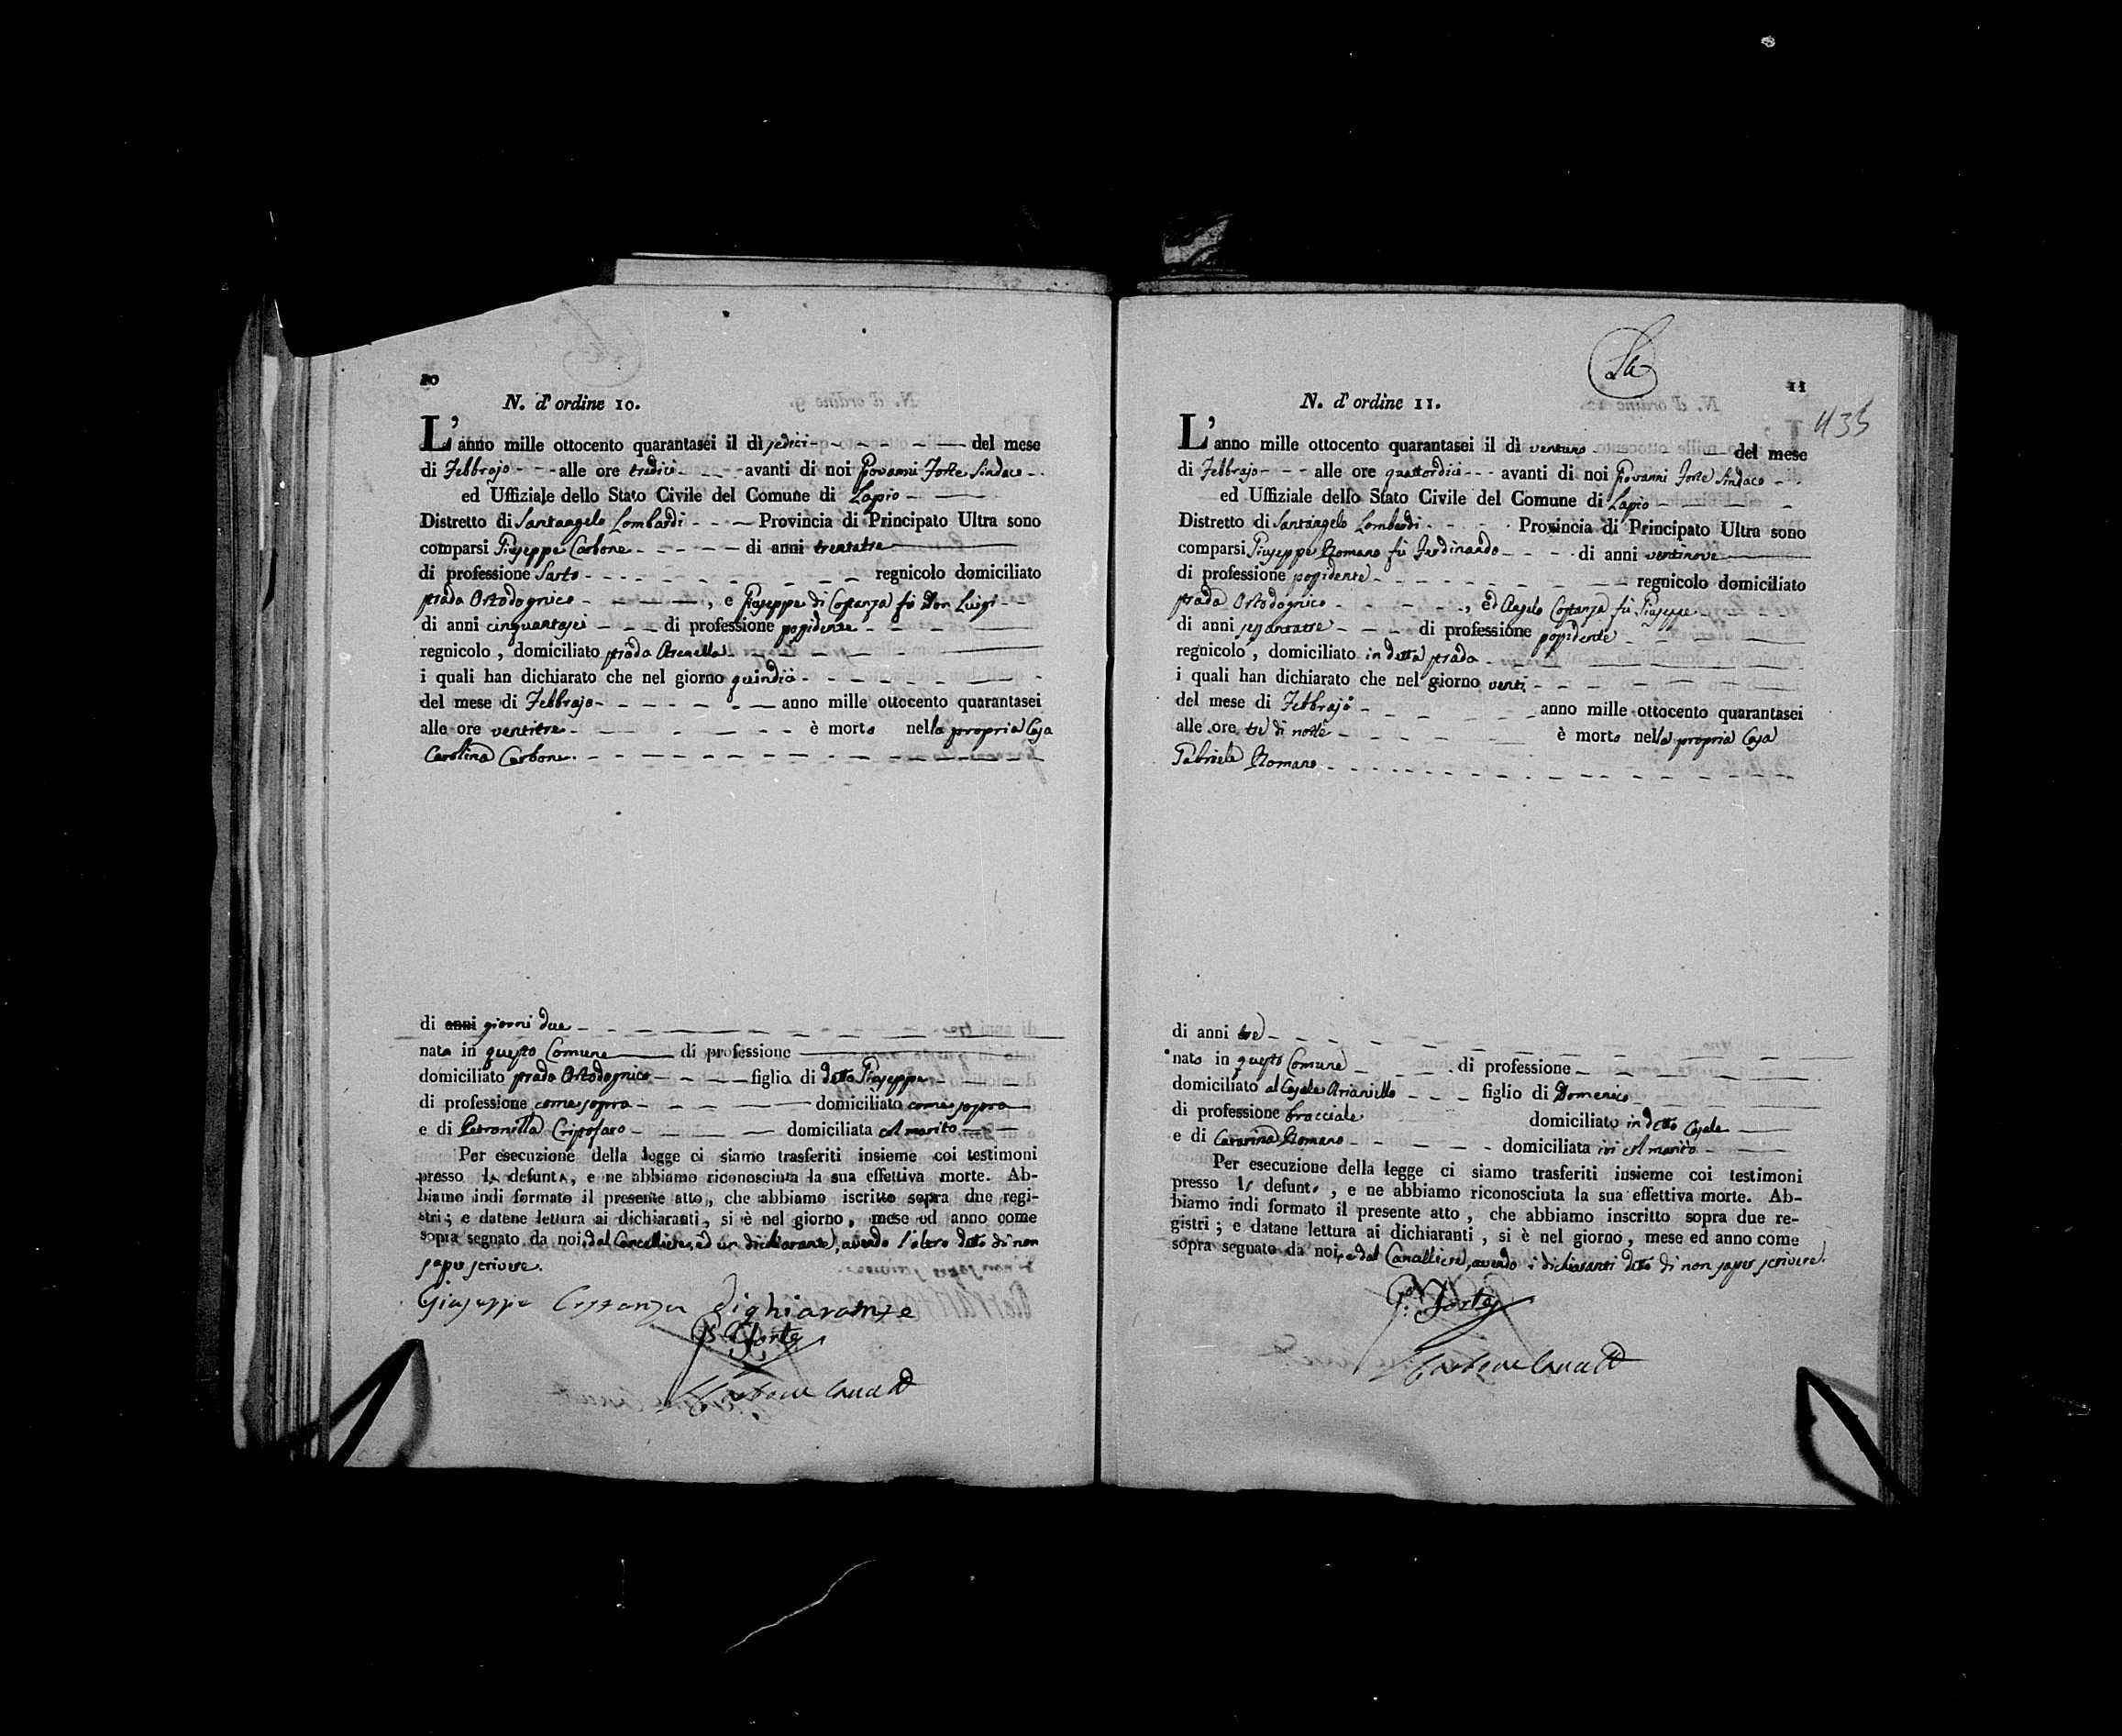 10
N. d' ordine 10.
L'anno mille ottocento quarantasei il dì sedici del mese
di Febbrajo alle ore tredici avanti di noi Giovanni Forte Sindaco
ed Uffiziale dello Stato Civile del Comune di Lapio
Distretto di Santangelo Lombardi Provincia di Principato Ultra sono
comparsi Giuseppe Carbone di anni trentatre
di professione Sarto regnicolo domiciliato
strada Ortodognico , e Giuseppe di Costanza fù Don Luigi
di anni cinquantasei di professione possidente
regnicolo , domiciliato strada Arenella
i quali han dichiarato che nel giorno quindici
del mese di Febbrajo anno mille ottocento quarantasei
alle ore ventitre è morta nella propria Casa
Carolina Carbone.
di anni giorni due
nata in questo Comune di professione
domiciliato strada Ortodognico figlia di detto Giuseppe
di professione come sopra domiciliato come sopra
e di Petronilla Cristofaro domiciliata col marito
Per esecuzione della legge ci siamo trasferiti insieme coi testimoni
presso la defunta, e ne abbiamo riconosciuta la sua effettiva morte. Ab-
biamo indi formato il presente atto, che abbiamo iscritto sopra due regi-
stri; e datene lettura ai dichiaranti, si è nel giorno, mese ed anno come
sopra segnato da noi, dal Cancelliere, ed un dichiarante, avendo l'altro detto di non
saper scrivere.
Giuseppe Costanza Dighiarante
G. Forte
Carbone Canc
11
435
N. d' ordine 11.
L'anno mille ottocento quarantasei il dì ventuno del mese
di Febbrajo alle ore quattordici avanti di noi Giovanni Forte Sindaco
ed Uffiziale dello Stato Civile del Comune di Lapio
Distretto di Santangelo Lombardi Provincia di Principato Ultra sono
comparsi Giuseppe Romano fù Ferdinando di anni ventinove
di professione possidente regnicolo domiciliato
strada Ortodognico , ed Angelo Costanza fù Giuseppe
di anni sessantatre di professione possidente
regnicolo , domiciliato in detta strada
i quali han dichiarato che nel giorno venti
del mese di Febbrajo anno mille ottocento quarantasei
alle ore tre di notte è morto nella propria Casa
Gabriele Romano
di anni tre
nato in questo Comune di professione
domiciliato al Casale Arianiello figlio di Domenico
di professione bracciale domiciliato in detto Casale
e di Catarina Romano domiciliata ivi col marito
Per esecuzione della legge ci siamo trasferiti insieme coi testimoni
presso lo defunto, e ne abbiamo riconosciuta la sua effettiva morte. Ab-
biamo indi formato il presente atto, che abbiamo inscritto sopra due re-
gistri; e datane lettura ai dichiaranti, si è nel giorno, mese ed anno come
sopra segnato da noi, e dal Cancelliere, avendo i dichiaranti detto di non saper scrivere.
G. Forte
Carbone Canc